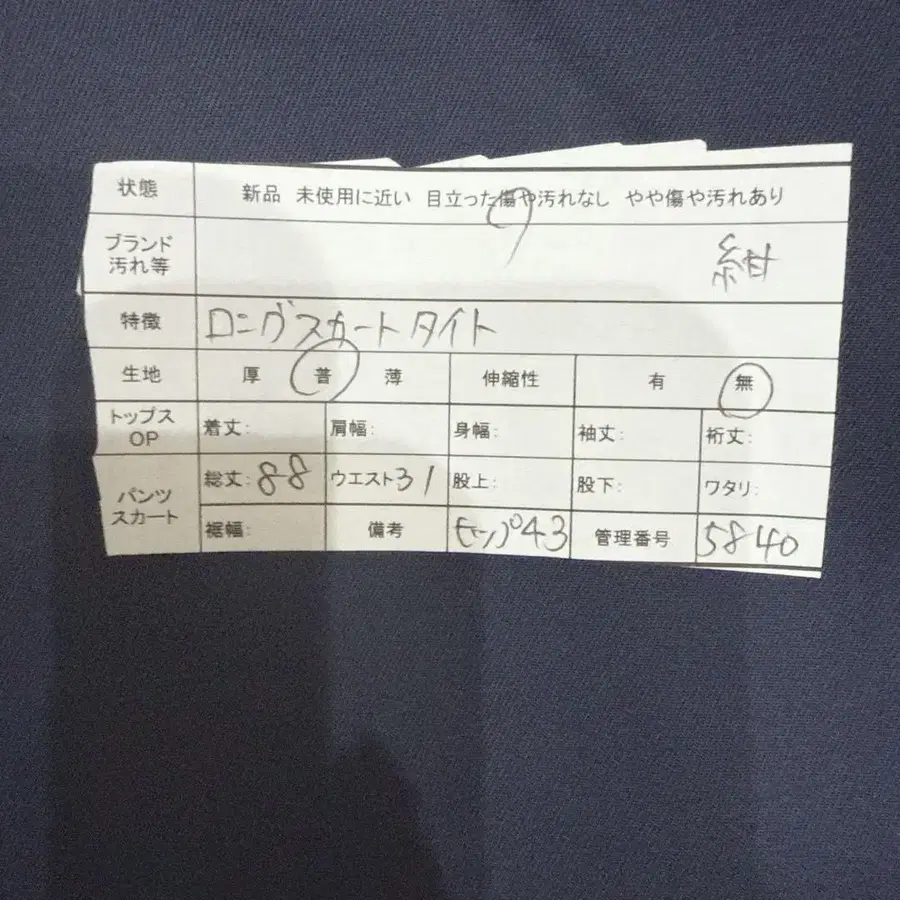 状態 新品 未使用に近い 目立った傷や汚れなし やや傷や汚れあり
ブランド
汚れ等 紺
特徴 ロングスカートタイト
生地 厚 普 薄 伸縮性 有 無
トップス
OP 着丈: 肩幅: 身幅: 袖丈: 裄丈:
パンツ
スカート 総丈: 88 ウエスト31 股上: 股下: ワタリ:
裾幅: 備考 ヒップ43 管理番号 5840